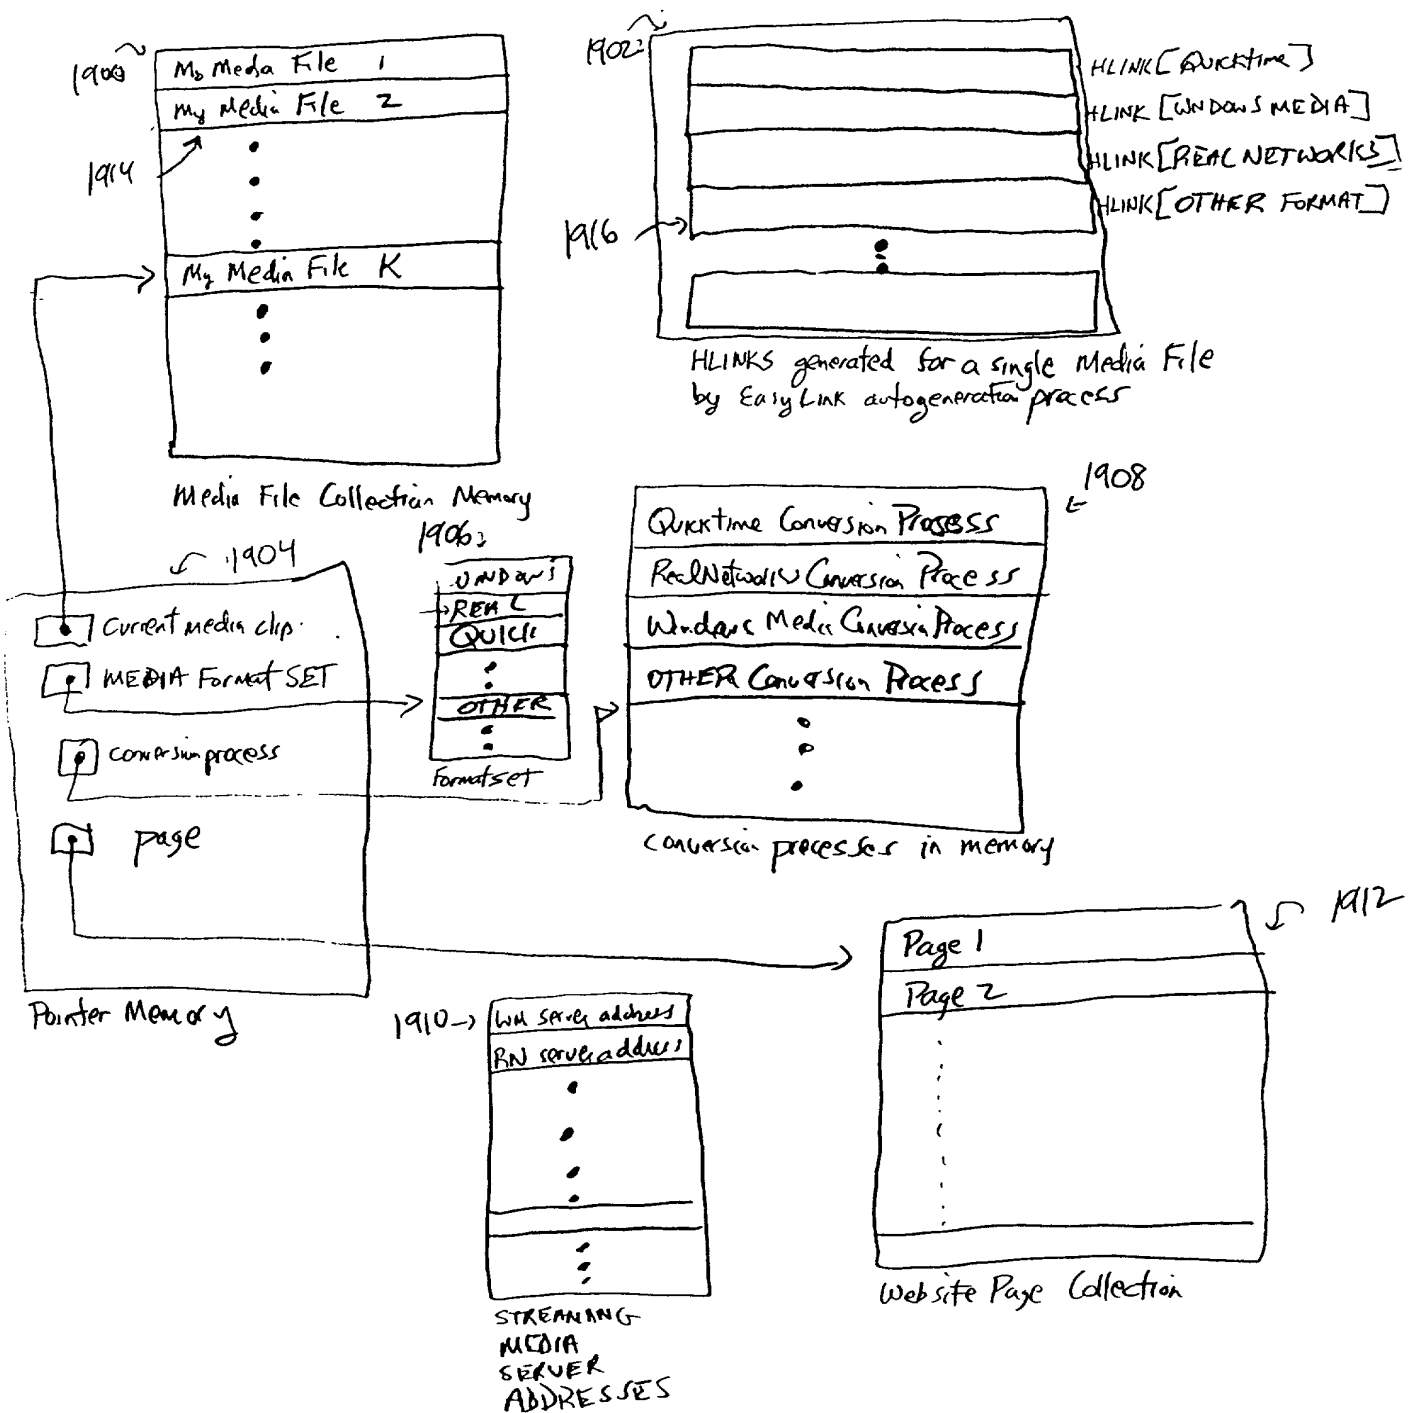 1900
My Media File 1
My Media File 2
1914
My Media File K
Media File Collection Memory
1902
HLINK[Quicktime]
HLINK[WNDOWS MEDIA]
HLINK[REAL NETWORKS]
HLINK[OTHER FORMAT]
1916
HLINKS generated for a single Media File
by EasyLink autogeneration process
1904
Current media clip
MEDIA Format SET
conversion process
page
Pointer Memory
1906
WNDOWS
REAL
QUICK
OTHER
Format set
1908
Quicktime Conversion Process
RealNetworks Conversion Process
Windows Media Conversion Process
OTHER Conversion Process
Conversion processes in memory
1910
WM server address
RN server address
STREAMING
MEDIA
SERVER
ADDRESSES
1912
Page 1
Page 2
Website Page Collection